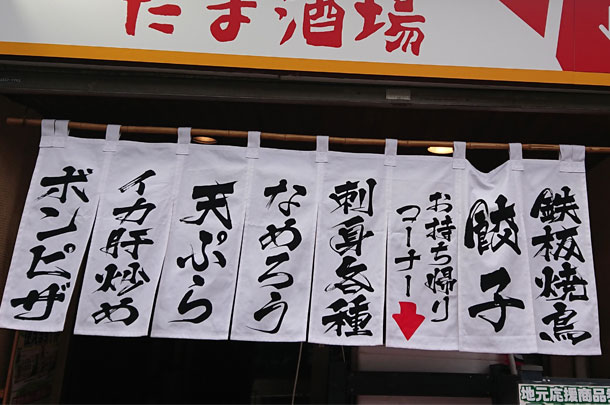 たま酒場
鉄板焼鳥
餃子
お持ち帰り
コーナー
刺身各種
なめろう
天ぷら
イカ肝炒め
ボンピザ
地元応援商品券